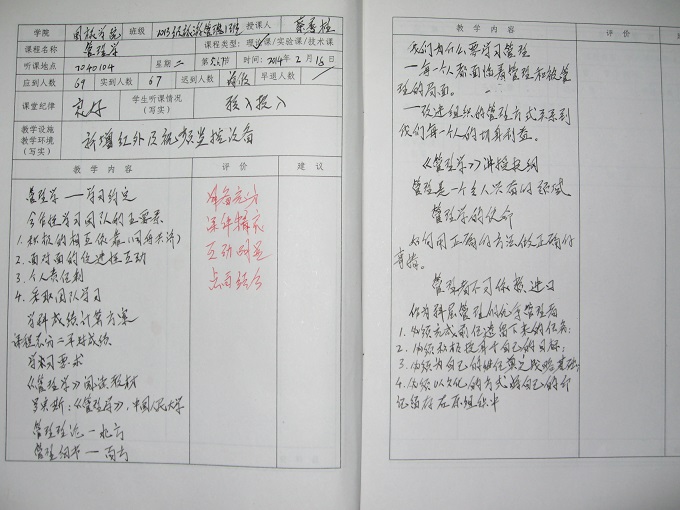 学院 国旅学院 班级 2013级旅游管理1班 授课人
课程名称 管理学 课程类型：理论课/实验课/技术课
听课地点 7040104 星期二 第5、6节 时间：2014年2月18日
应到人数 69 实到人数 67 迟到人数 早退人数
课堂纪律 良好 学生听课情况（写实） 较入投入
教学设施 教学环境（写实） 新增红外及视频监控设备
教学内容 评价 建议
管理学——学习约定
合作性学习团队的五要素
1. 积极的相互依靠（同舟共济）
2. 面对面的促进性互动
3. 个人责任制
4. 采取团队学习
学科成绩计算方案
学习要求
《管理学》阅读教材
罗宾斯：《管理学》，中国人民大学
管理理论—北方
管理细节——南方
准备充分
课件精彩
互动明显
点面结合
教学内容 评价
我们为什么要学习管理
—每一个人都面临着管理和被管理的局面。
—改进组织的管理方式关系到我们每一个人的切身利益。
《管理学》讲授提纲
管理是一个主人公存的领域
管理学的使命
如何用正确的方法做正确的事情。
管理者不可依赖进口
作为科层管理的优秀管理者
1. 必须完成前任遗留下来的任务；
2. 必须积极提升自己的目标；
3. 必须为自己的继任奠定战略基础；
4. 必须以文化的方式将自己的印记留存在原组织中